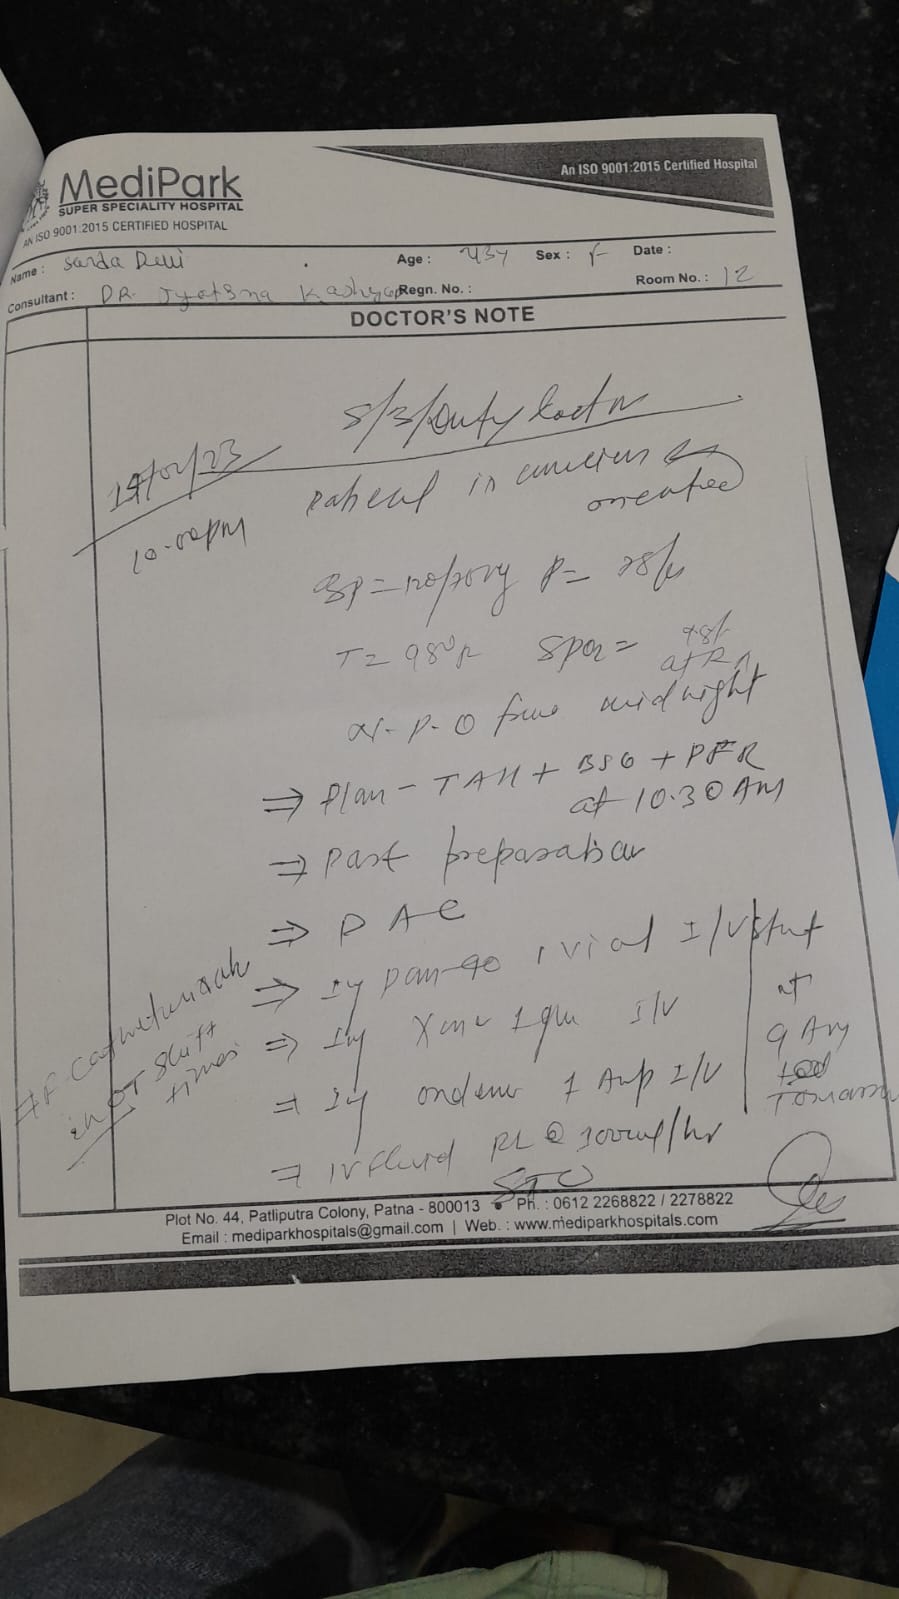 An ISO 9001:2015 Certified Hospital
MediPark
SUPER SPECIALITY HOSPITAL
AN ISO 9001:2015 CERTIFIED HOSPITAL
Name : Sarda Devi Age : 43y Sex : F Date :
Consultant : DR. Jyotsna Kashyap Regn. No. : Room No. : 12
DOCTOR'S NOTE
S/B/Duty Doctor
10.00PM
oriented
BP = P =
T = SPO2 =
at RA
N-P-O from midnight
⇒ Plan - TAH + BSO + PFR
at 10.30 AM
⇒ Part preparation
⇒ PAC
⇒ Inj Pan-40 1 vial I/V
⇒ Inj 1gm I/V
⇒ Inj 1 Amp I/V
at
9 AM
Tomorrow
⇒ IV fluid RL @ 100ml/hr
in OT shift
times
Plot No. 44, Patliputra Colony, Patna - 800013 • Ph. : 0612 2268822 / 2278822
Email : mediparkhospitals@gmail.com | Web. : www.mediparkhospitals.com